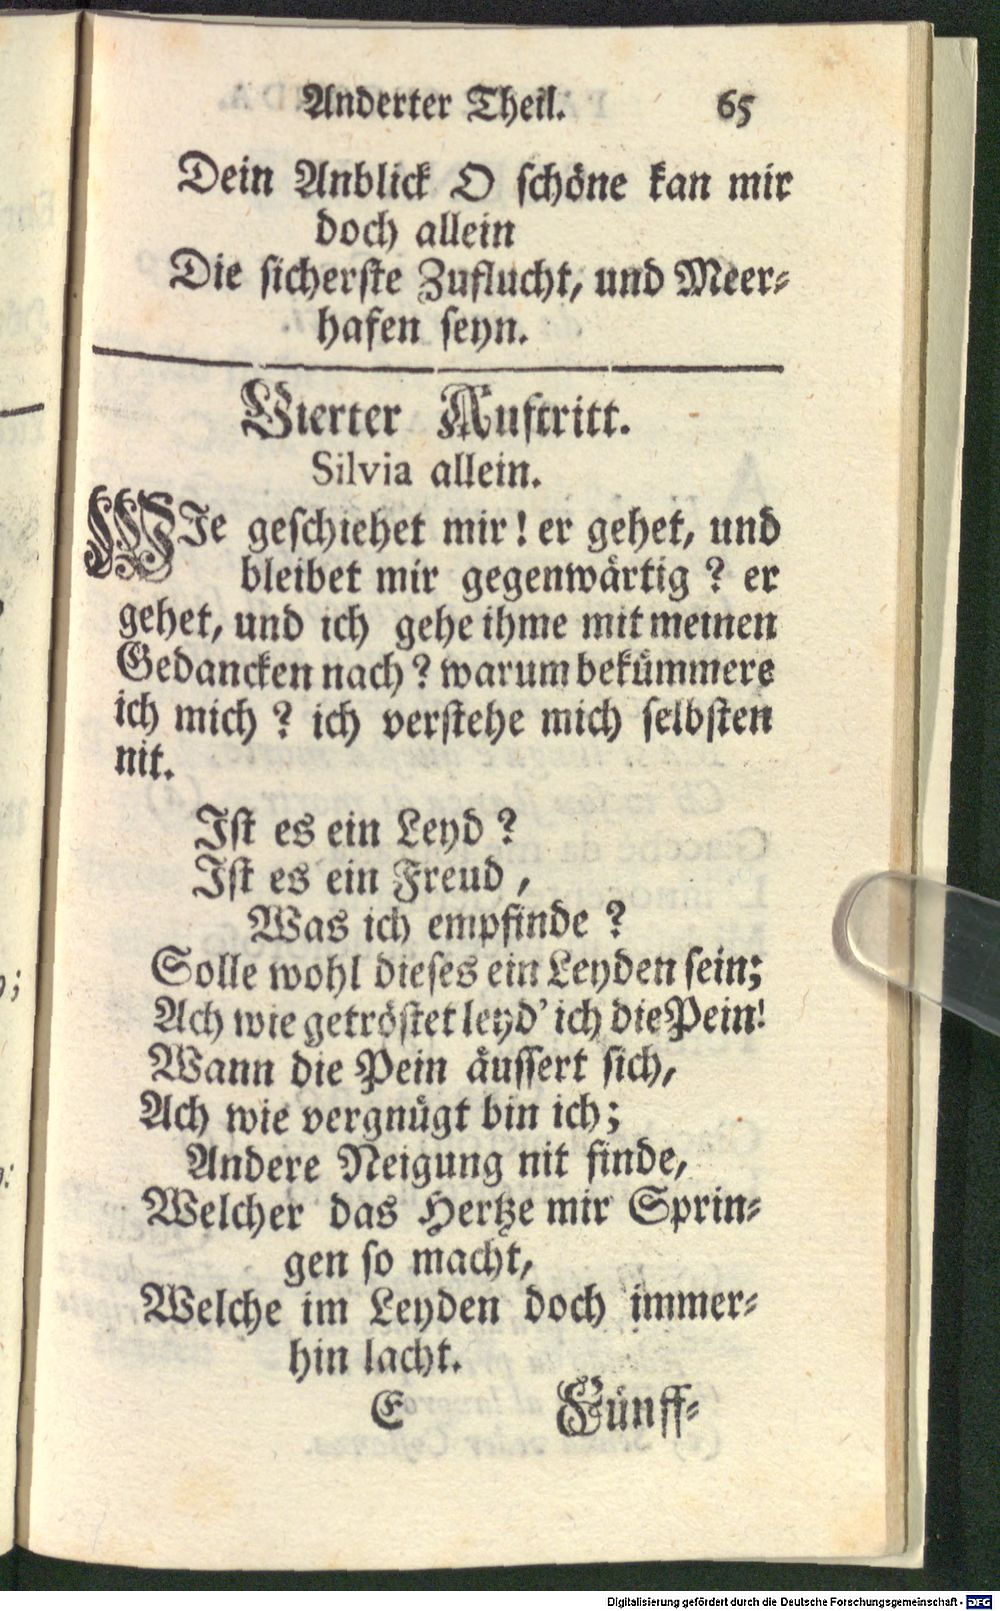 Anderter Theil. 65
Dein Anblick O schöne kan mir
doch allein
Die sicherste Zuflucht, und Meer-
hafen seyn.
Vierter Auftritt.
Silvia allein.
WIe geschiehet mir! er gehet, und
bleibet mir gegenwärtig? er
gehet, und ich gehe ihme mit meinen
Gedancken nach? warum bekümmere
ich mich? ich verstehe mich selbsten
nit.
Ist es ein Leyd?
Ist es ein Freud,
Was ich empfinde?
Solle wohl dieses ein Leyden sein;
Ach wie getröstet leyd' ich die Pein!
Wann die Pein äussert sich,
Ach wie vergnügt bin ich;
Andere Neigung nit finde,
Welcher das Hertze mir Sprin-
gen so macht,
Welche im Leyden doch immer-
hin lacht.
E Fünff-
Digitalisierung gefördert durch die Deutsche Forschungsgemeinschaft - DFG